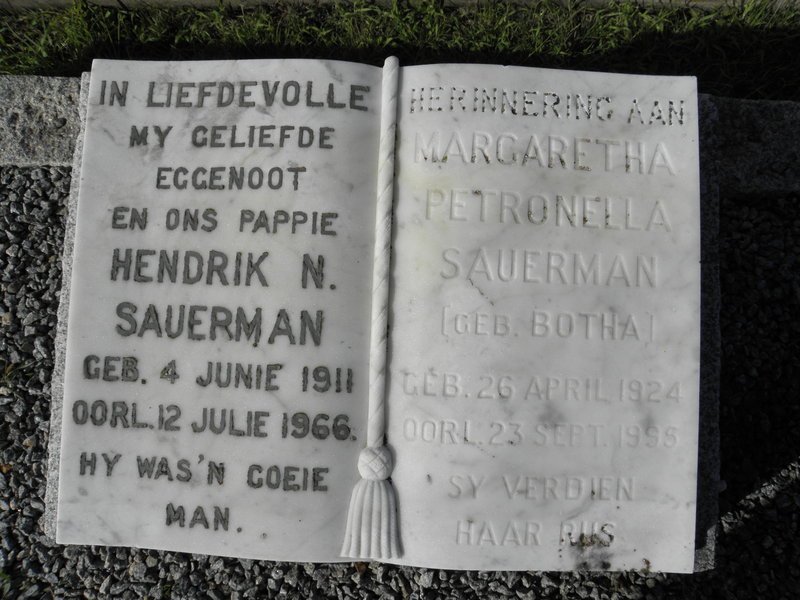 IN LIEFDEVOLLE
MY GELIEFDE
EGGENOOT
EN ONS PAPPIE
HENDRIK N.
SAUERMAN
GEB. 4 JUNIE 1911
OORL. 12 JULIE 1966.
HY WAS 'N GOEIE
MAN.
HERINNERING AAN
MARGARETHA
PETRONELLA
SAUERMAN
[GEB. BOTHA]
GEB. 26 APRIL 1924
OORL. 23 SEPT.
SY VERDIEN
HAAR RUS.